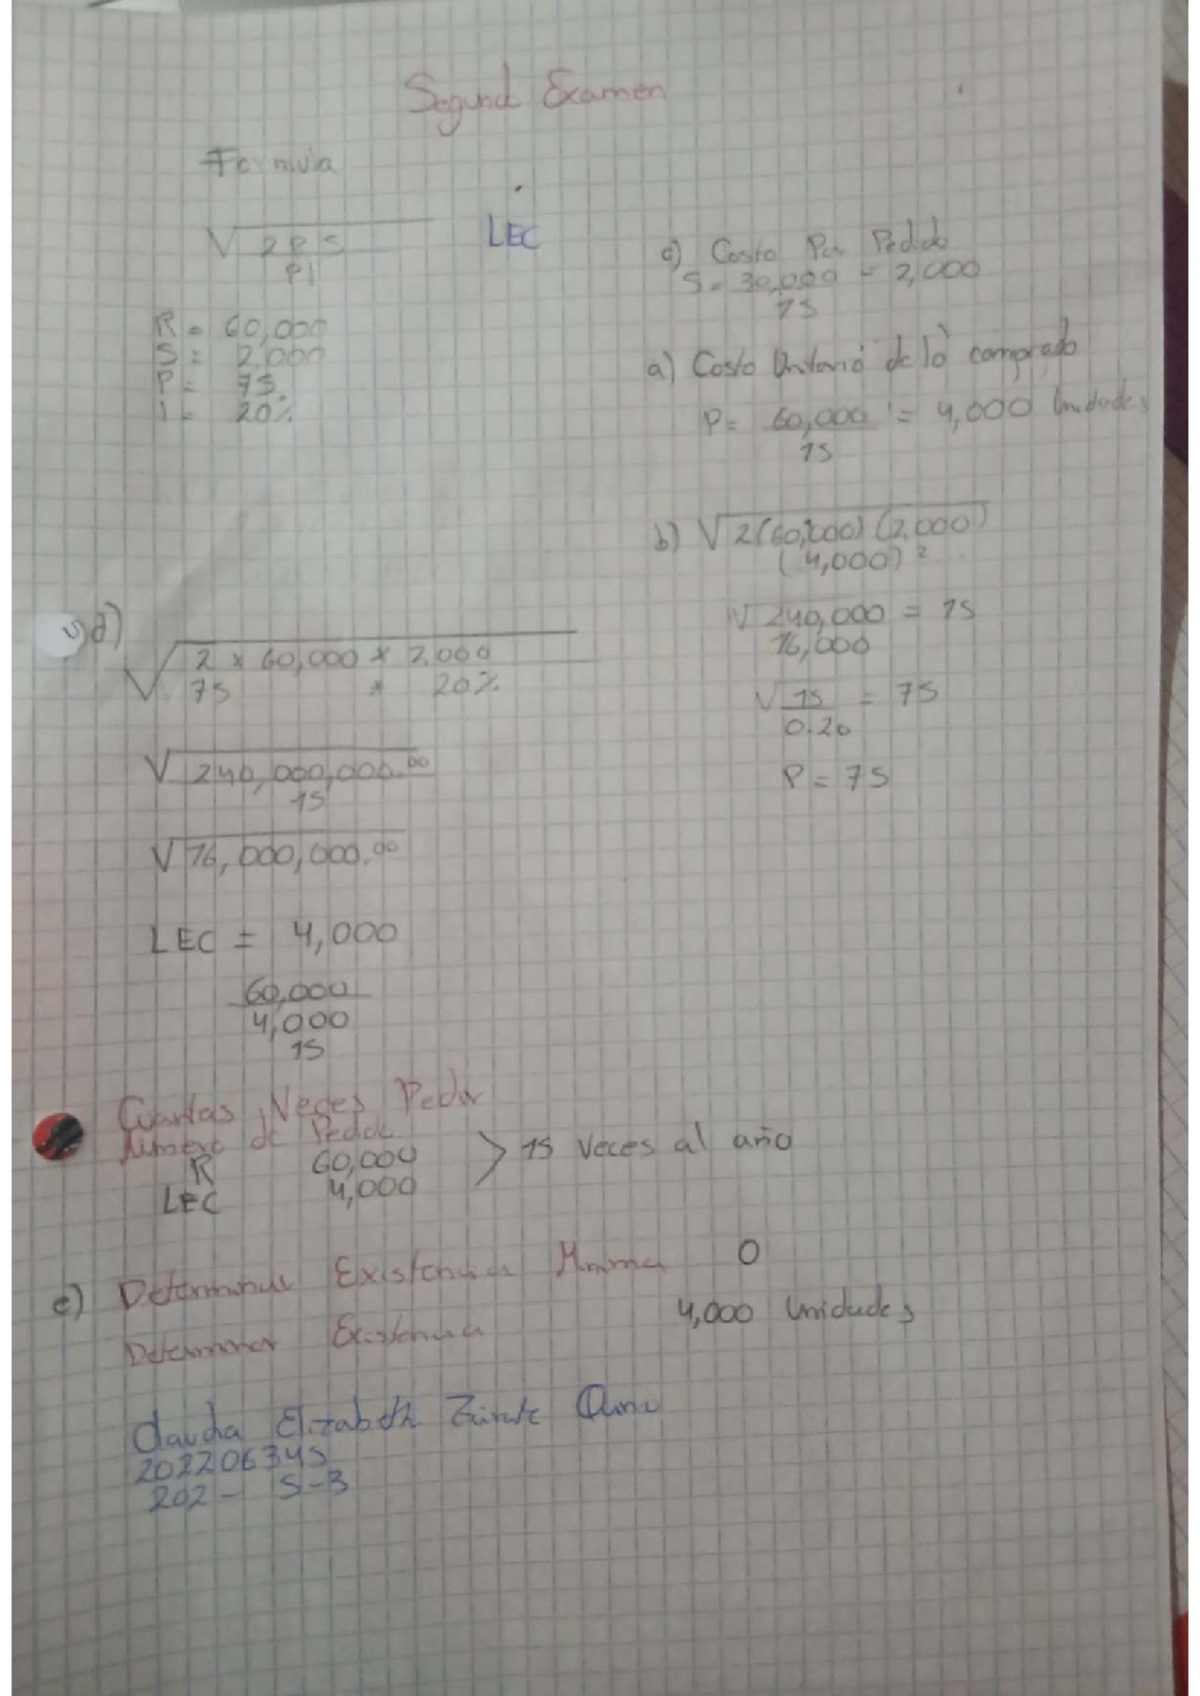 Segundo Examen
Formula
√ 2 R S
P I
LEC
R = 60,000
S = 2,000
P = 75.
I = 20%
c) Costo Por Pedido
S = 30,000 = 2,000
15
a) Costo Unitario de lo comprado
P = 60,000 = 4,000 Unidades
15
b) √ 2(60,000) (2,000)
(4,000)²
√ 240,000 = 15
16,000
√ 15 = 75
0.20
P = 75
d)
√ 2 * 60,000 * 2,000
75 * 20%
√ 240,000,000.00
15
√ 16,000,000.00
LEC = 4,000
60,000
4,000
15
Cuantas Veces Pedir
Numero de Pedido
R 60,000 > 15 Veces al año
LEC 4,000
e) Determinar Existencia Minima 0
Determinar Existencia 4,000 Unidades
Claudia Elizabeth Zárate
202206345
202- S-3